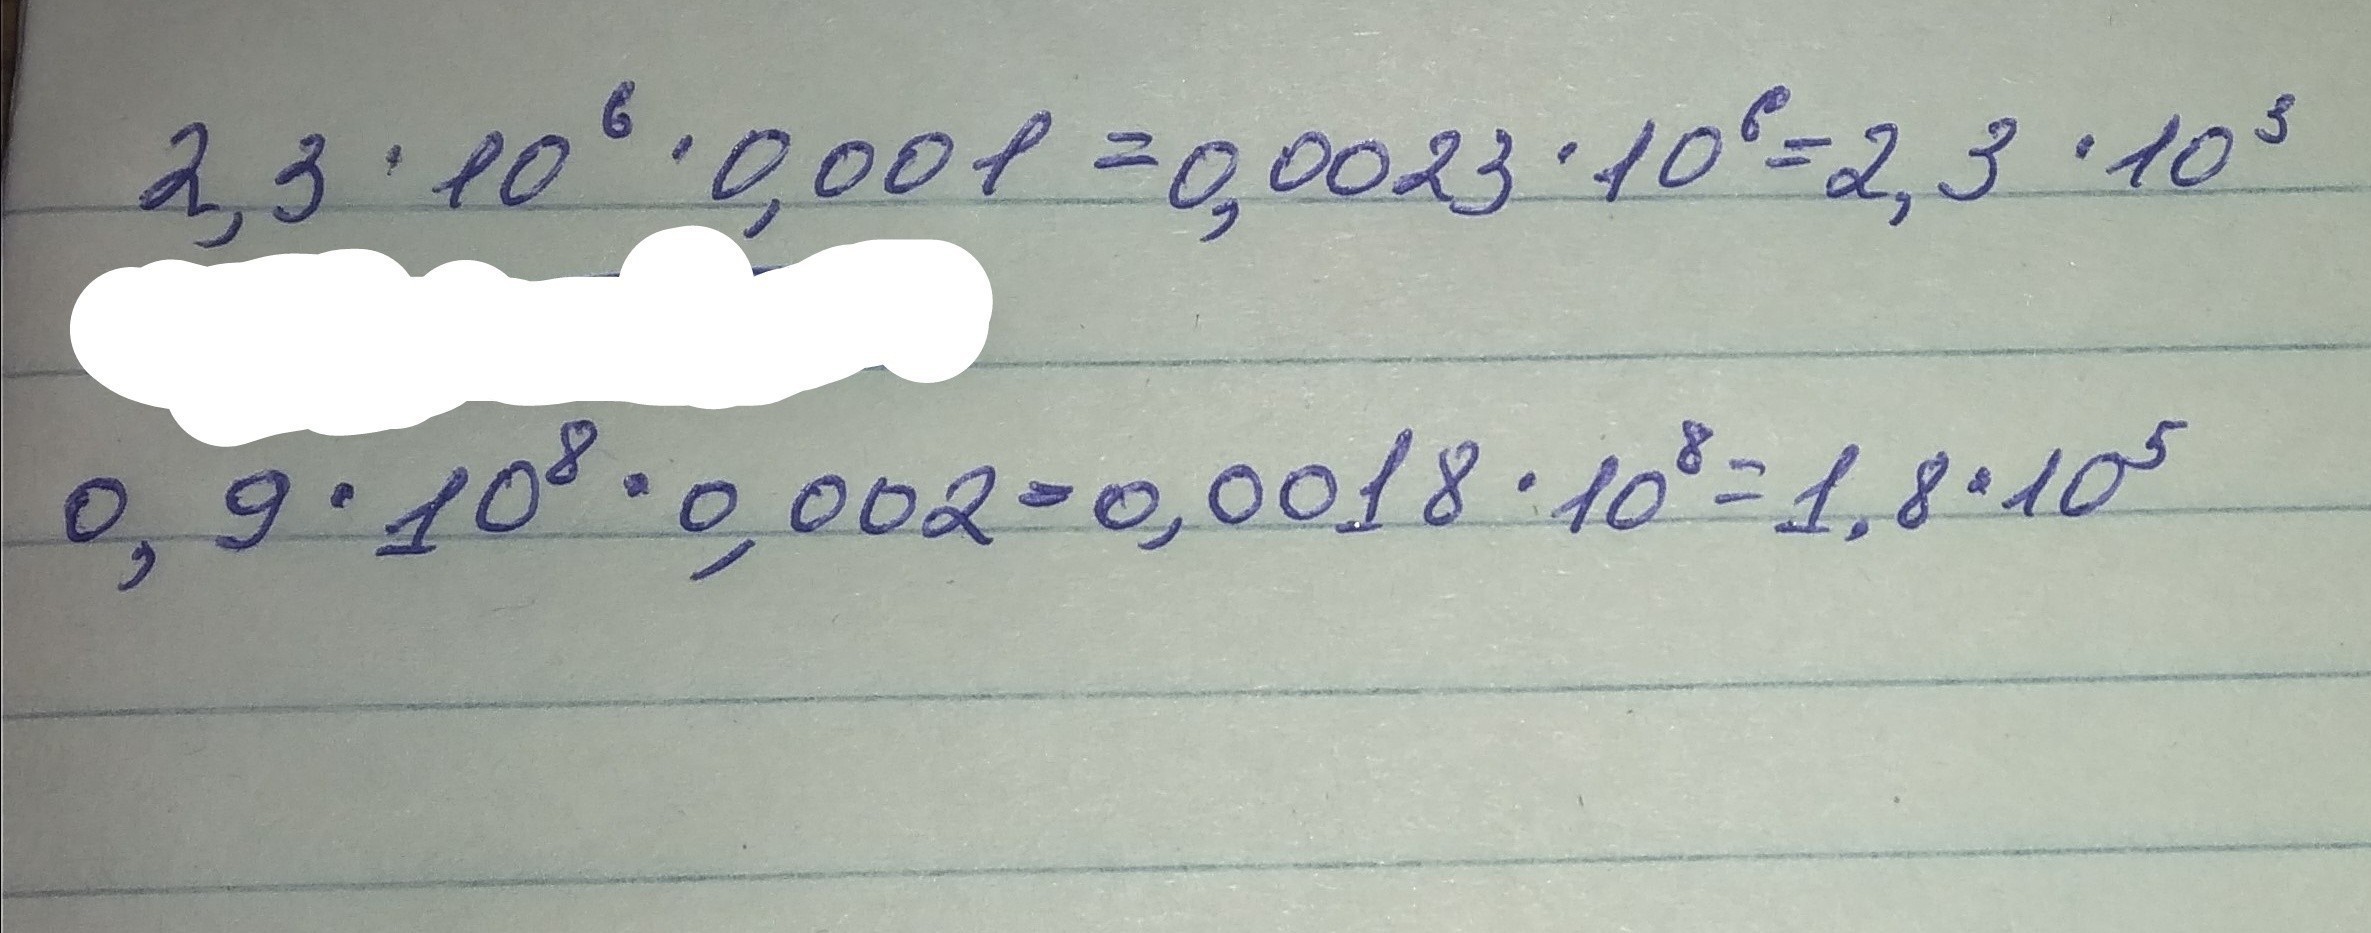 2,3 · 10⁶ · 0,001 = 0,0023 · 10⁶ = 2,3 · 10³
0,9 · 10⁸ · 0,002 = 0,0018 · 10⁸ = 1,8 · 10⁵